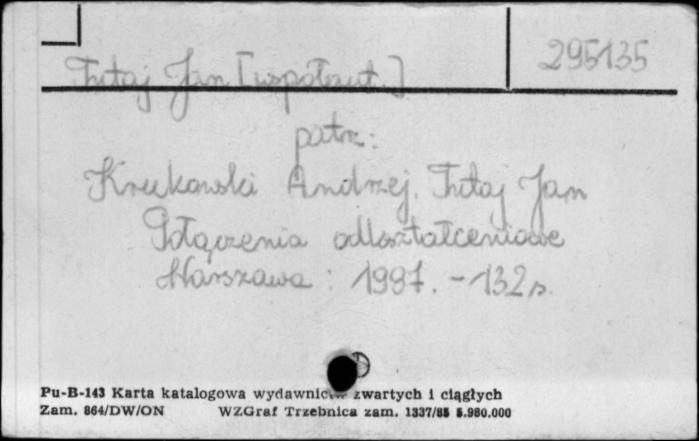 Tutaj Jan [współaut.]
295135
patrz:
Krukowski Andrzej, Tutaj Jan
Połączenia odkształceniowe
Warszawa : 1987. - 132 s.
Pu-B-143 Karta katalogowa wydawnictw zwartych i ciągłych
Zam. 864/DW/ON WZGraf Trzebnica zam. 1337/85 5.980.000